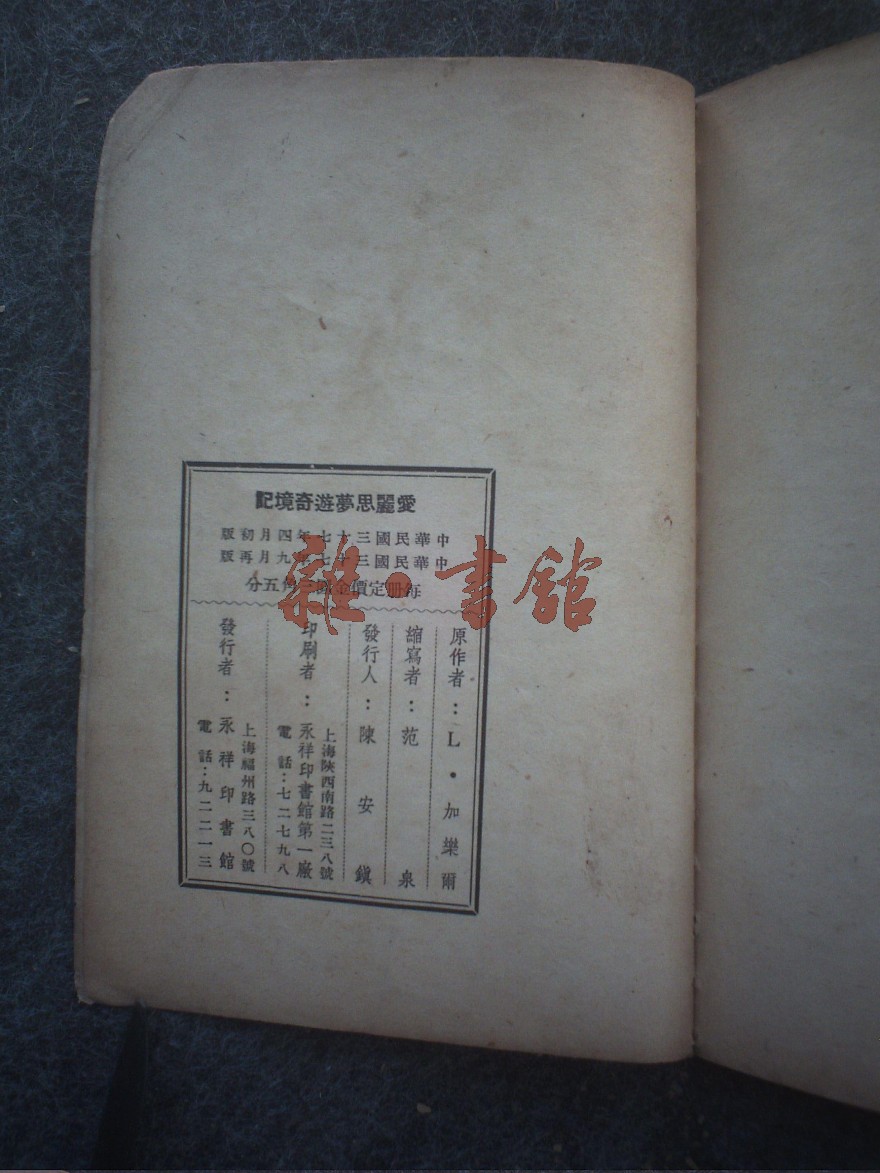 愛麗思夢遊奇境記
中華民國三十七年四月初版
中華民國三十七年九月再版
每册定價金圓三角五分
原作者：L·加樂爾
縮寫者：范泉
發行人：陳安鎮
印刷者：永祥印書館第一廠
上海陝西南路二三八號
電話：七二七九八
發行者：永祥印書館
上海福州路三八〇號
電話：九二二一三
雜·書館